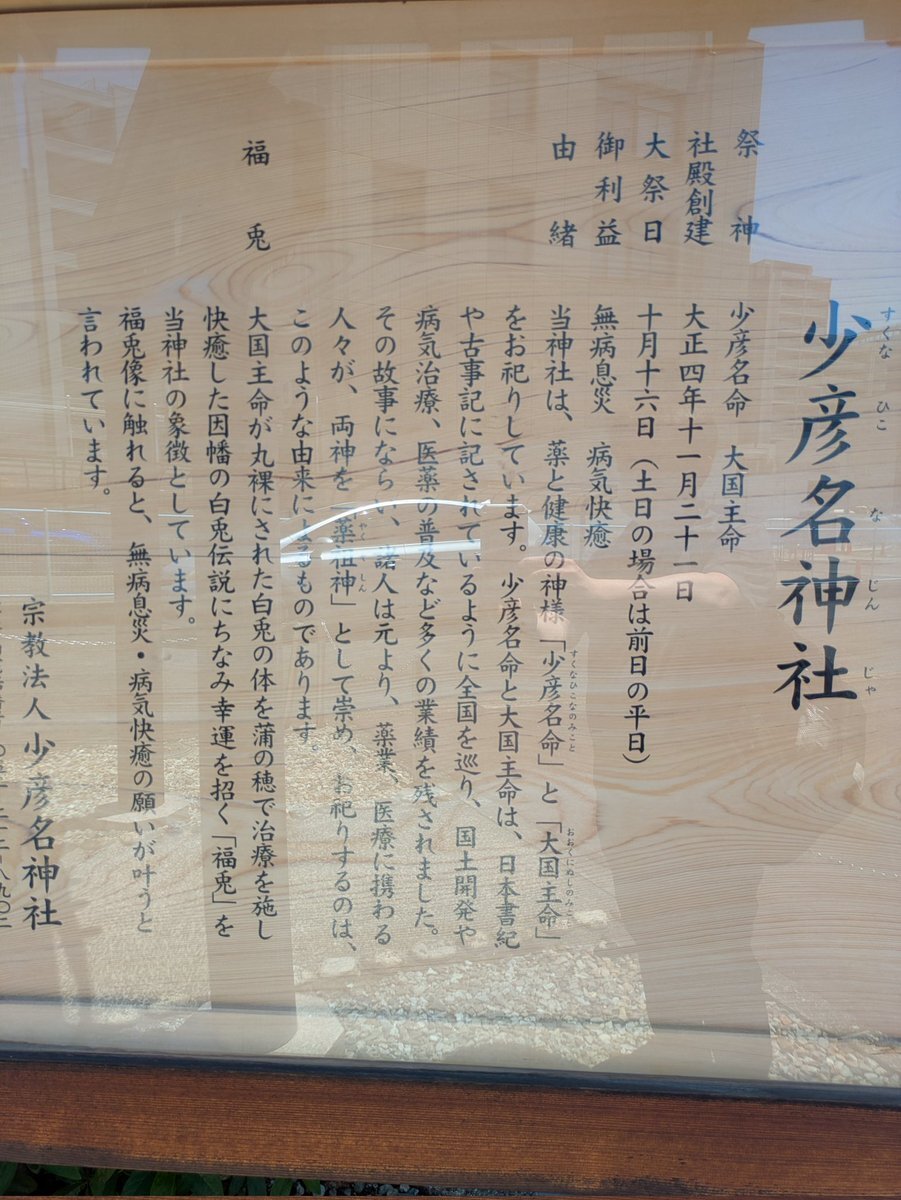 少彦名神社
すくな ひこ な じん じゃ
祭神 少彦名命 大国主命
社殿創建 大正四年十一月二十一日
大祭日 十月十六日（土日の場合は前日の平日）
御利益 無病息災 病気快癒
由緒 当神社は、薬と健康の神様「少彦名命」と「大国主命」
すくなひこなのみこと おおくにぬしのみこと
をお祀りしています。少彦名命と大国主命は、日本書紀
や古事記に記されているように全国を巡り、国土開発や
病気治療、医薬の普及など多くの業績を残されました。
その故事にならい、諸人は元より、薬業、医療に携わる
人々が、両神を「薬祖神」として崇め、お祀りするのは、
このような由来によるものであります。
福兎 大国主命が丸裸にされた白兎の体を蒲の穂で治療を施し
快癒した因幡の白兎伝説にちなみ幸運を招く「福兎」を
当神社の象徴としています。
福兎像に触れると、無病息災・病気快癒の願いが叶うと
言われています。
宗教法人 少彦名神社